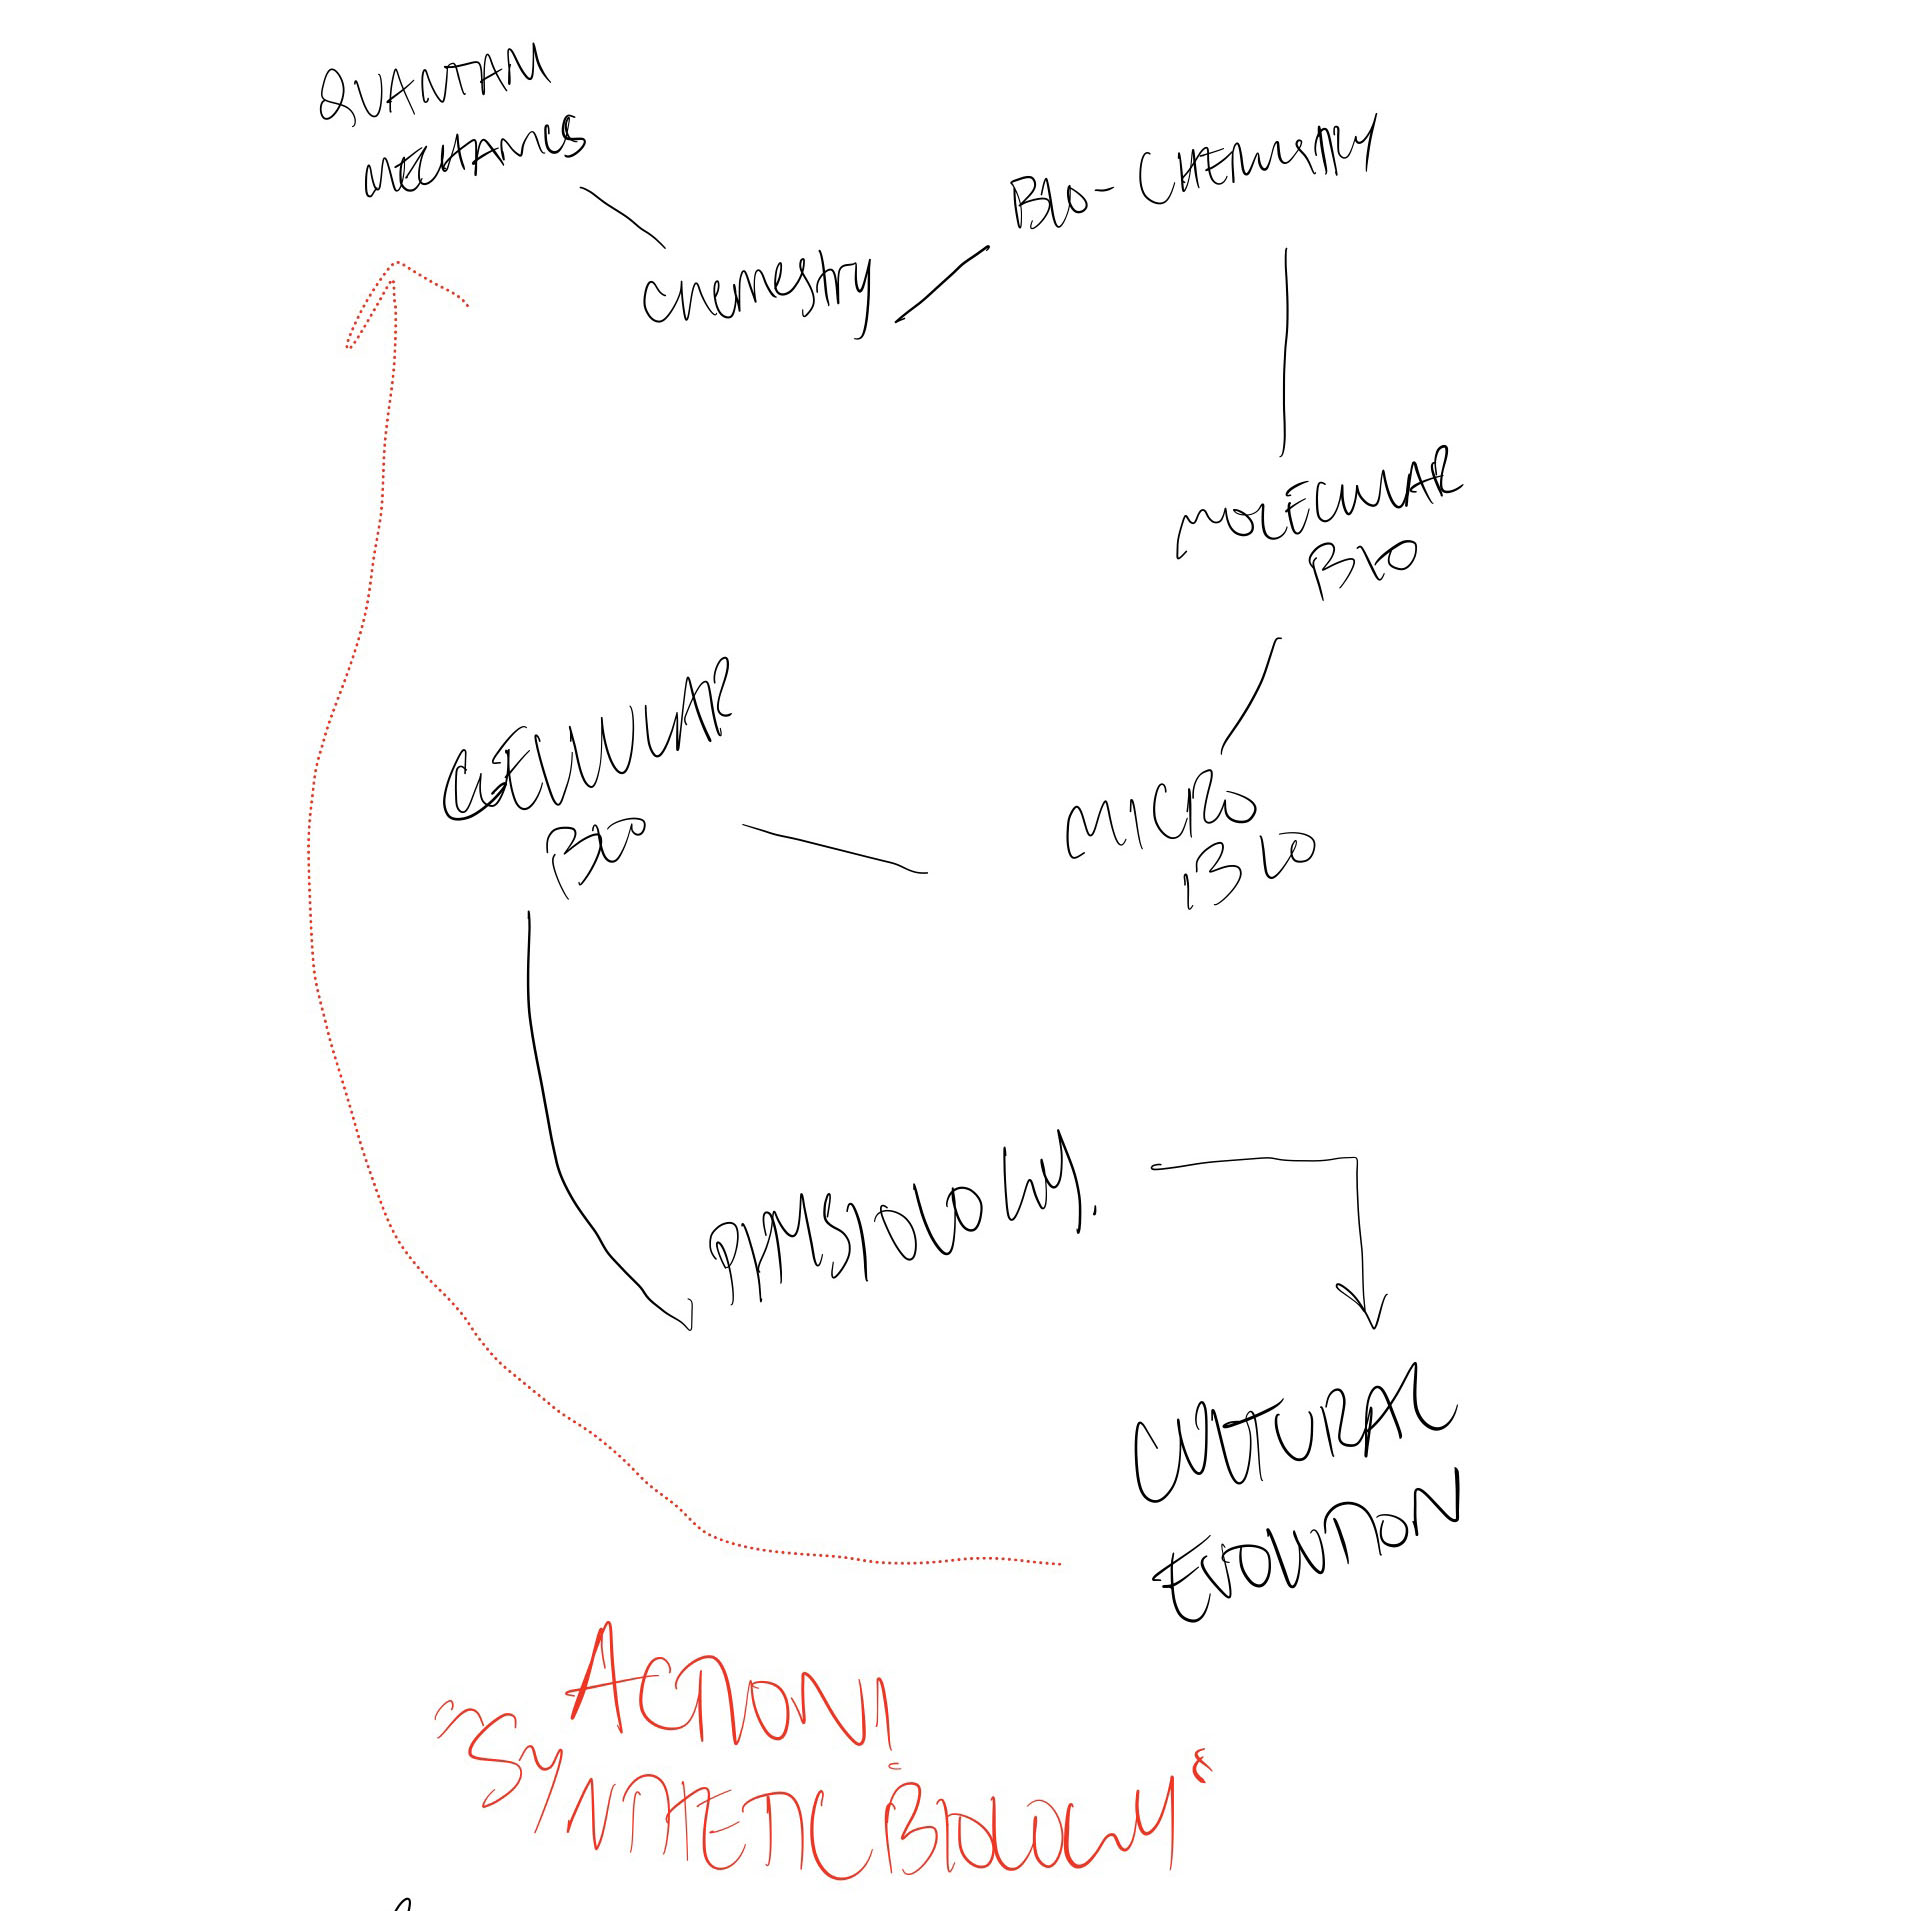 QUANTAM
MECHANICS
BIO-CHEMISTRY
CHEMISTRY
MOLECULAR
BIO
CELLULAR
BIO
MICRO
BIO
PHYSIOLOGY.
CULTURAL
EVOLUTION
ACTION!
"SYNTHETIC BIOLOGY"